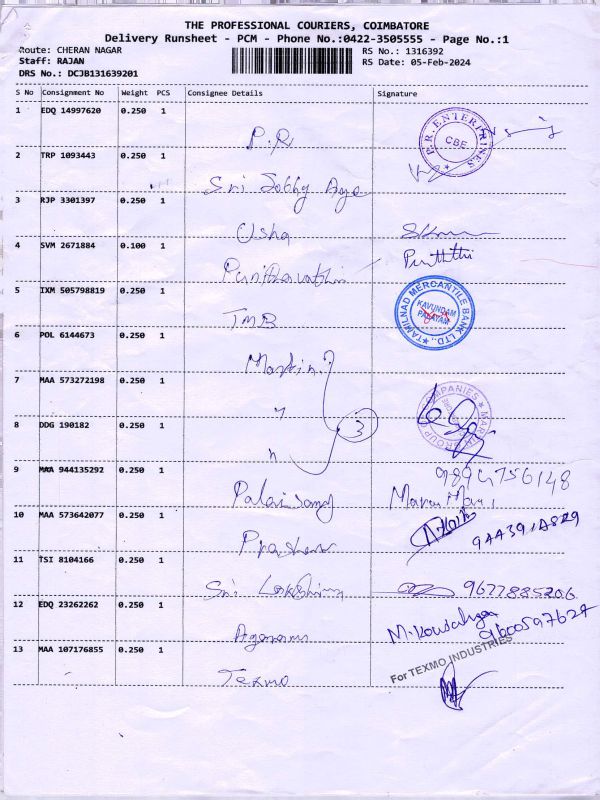 THE PROFESSIONAL COURIERS, COIMBATORE
Delivery Runsheet - PCM - Phone No.:0422-3505555 - Page No.:1
Route: CHERAN NAGAR
RS No.: 1316392
Staff: RAJAN
RS Date: 05-Feb-2024
DRS No.: DCJB131639201
S No Consignment No Weight PCS Consignee Details Signature
1 EDQ 14997620 0.250 1
P.R
P.R.ENTERPRINES CBE
2 TRP 1093443 0.250 1
Sri
3 RJP 3301397 0.250 1
Usha
4 SVM 2671884 0.100 1
Punithavathi
5 IXM 505798819 0.250 1
TMB
TAMILNAD MERCANTILE BANK LTD., KAVUNDAM PALAYAM
6 POL 6144673 0.250 1
Martin
7 MAA 573272198 0.250 1
"
8 DDG 190182 0.250 1
"
3
9 MAA 944135292 0.250 1
Palanisamy
9894756148
10 MAA 573642077 0.250 1
11 TSI 8104166 0.250 1
Sri Lakshmi
12 EDQ 23262262 0.250 1
Agaram
M.Kowsalya
9600597627
13 MAA 107176855 0.250 1
Texmo
For TEXMO INDUSTRIES